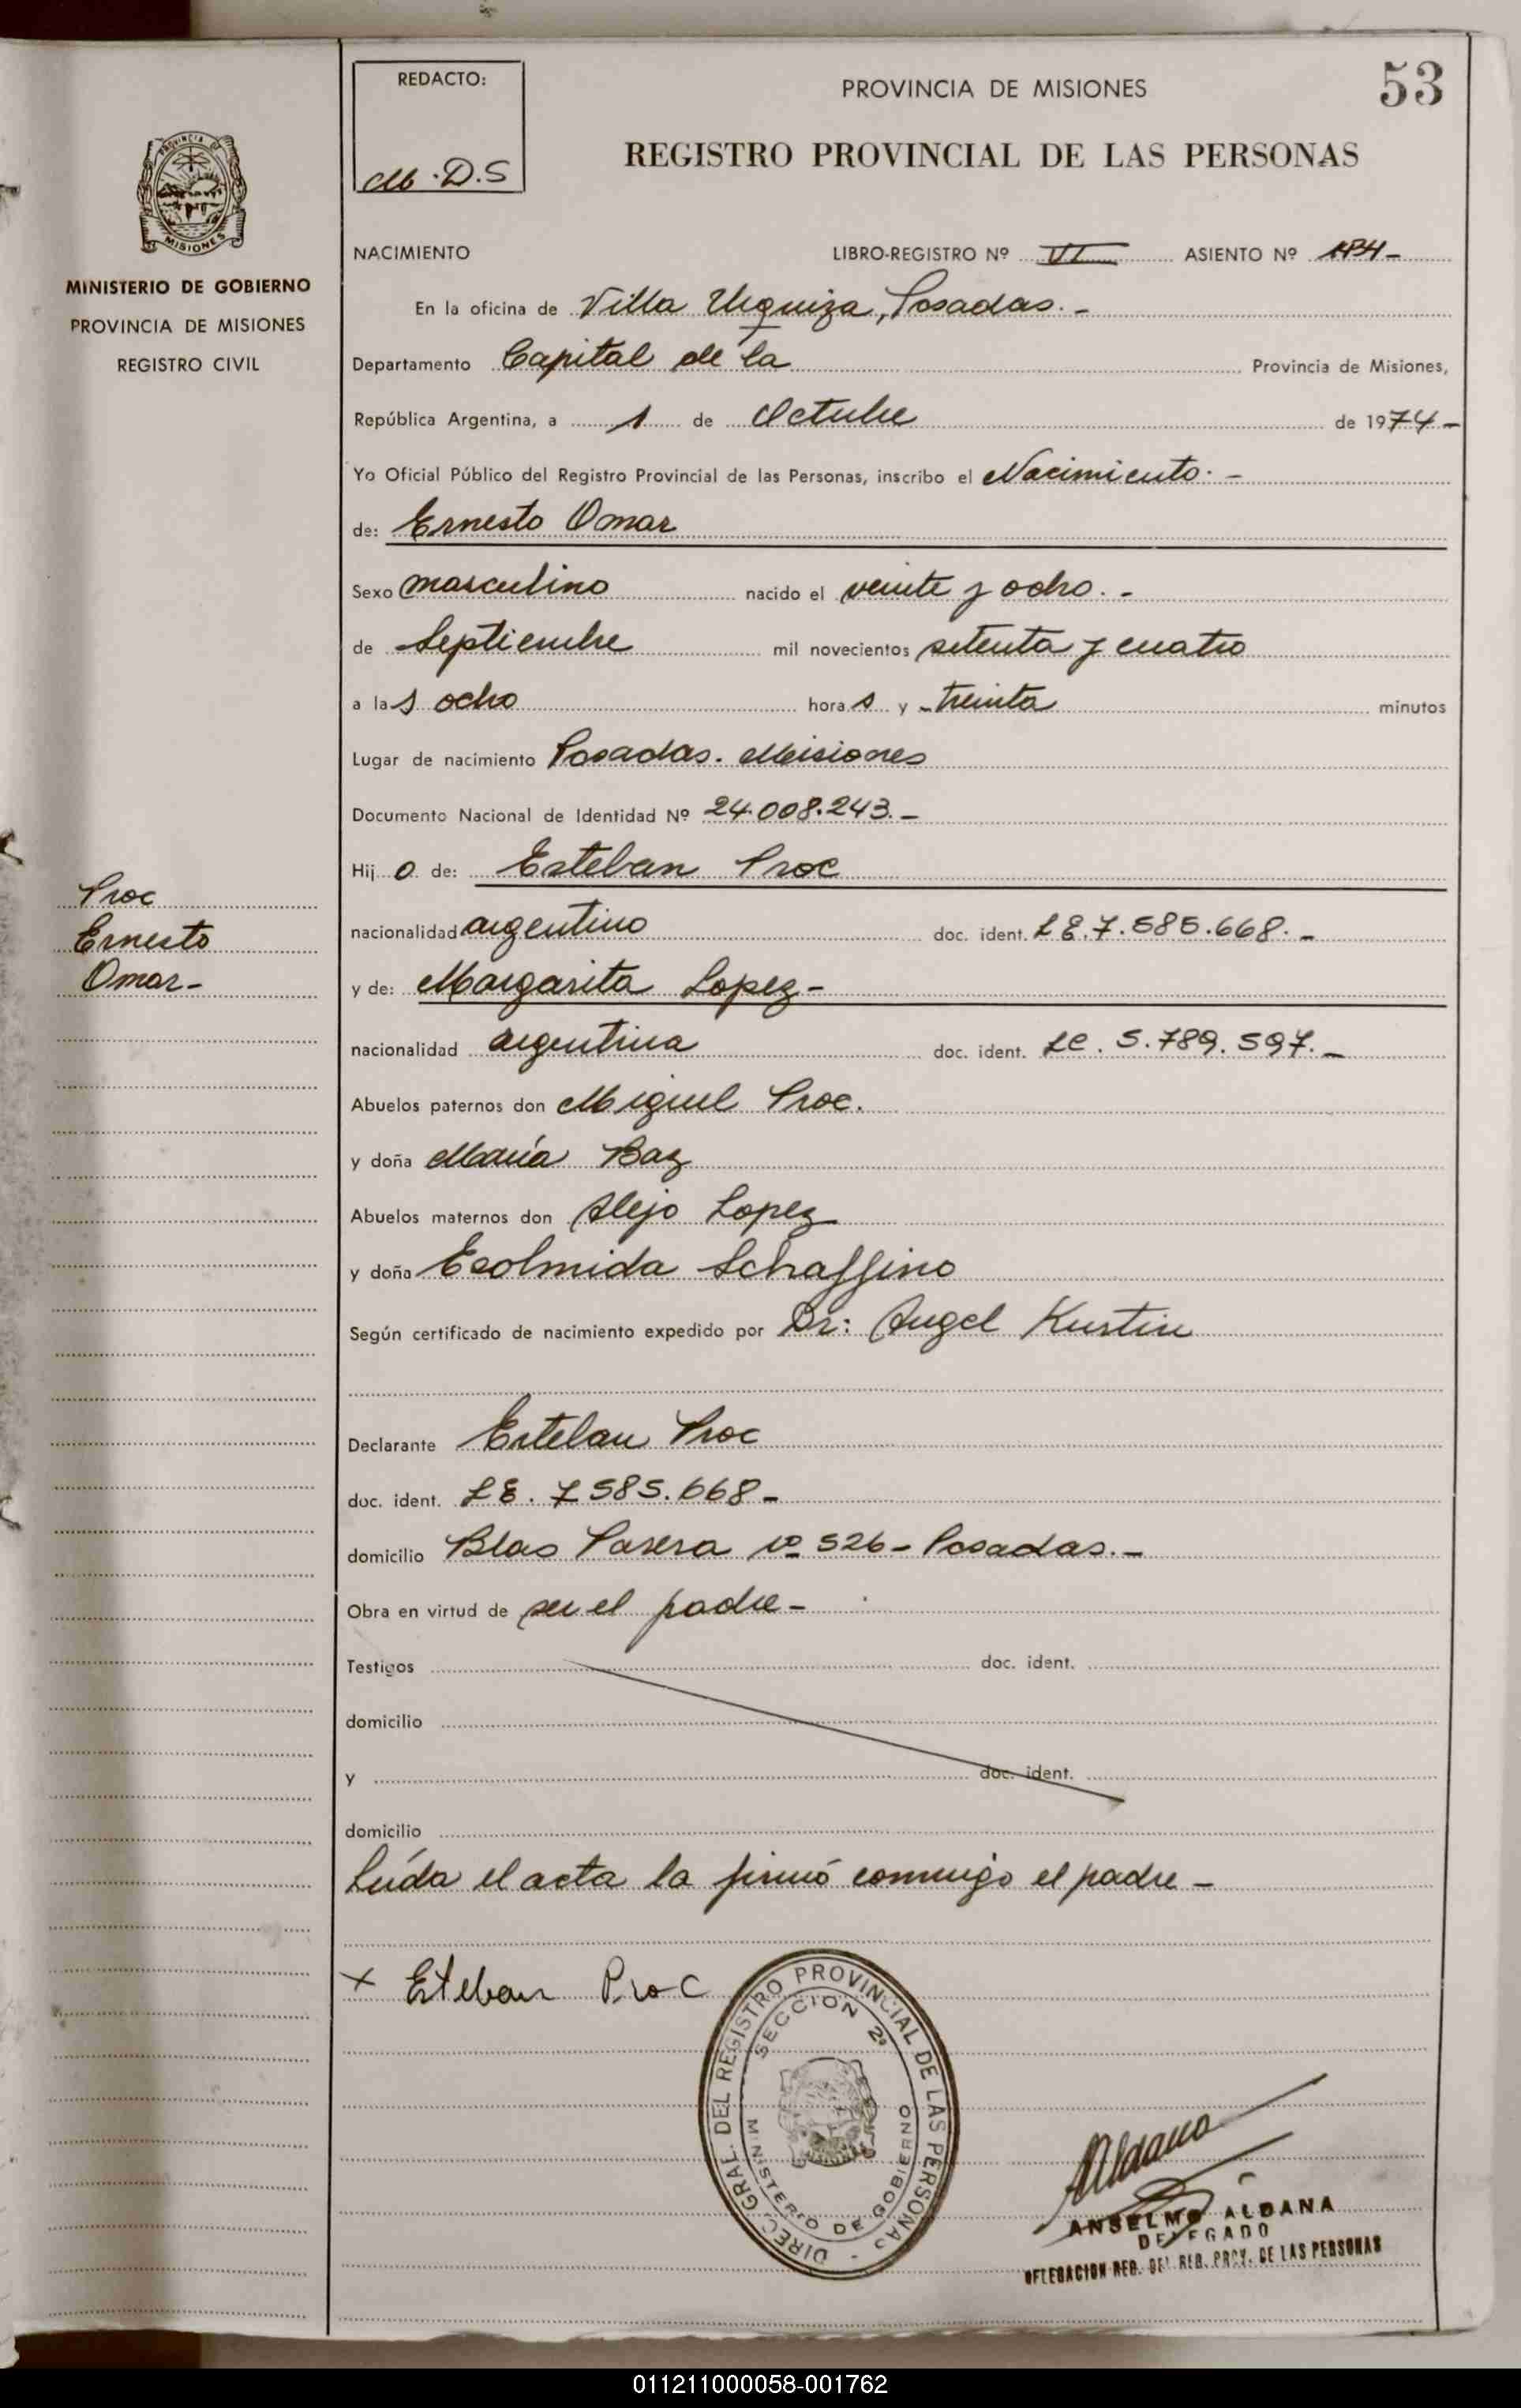 REDACTO:
M.D.S
PROVINCIA DE MISIONES
53
REGISTRO PROVINCIAL DE LAS PERSONAS
PROVINCIA DE
MISIONES
MINISTERIO DE GOBIERNO
PROVINCIA DE MISIONES
REGISTRO CIVIL
NACIMIENTO LIBRO-REGISTRO Nº VI ASIENTO Nº
En la oficina de Villa Urquiza, Posadas.-
Departamento Capital de la Provincia de Misiones,
República Argentina, a 1 de Octubre de 1974-
Yo Oficial Público del Registro Provincial de las Personas, inscribo el Nacimiento.-
de: Ernesto Omar
Sexo masculino nacido el veinte y ocho.-
de Septiembre mil novecientos setenta y cuatro
a las ocho horas y treinta minutos
Lugar de nacimiento Posadas. Misiones
Documento Nacional de Identidad Nº 24.008.243.-
Hijo de: Esteban Proc
Proc
Ernesto
Omar-
nacionalidad argentino doc. ident. LE.7.585.668.-
y de: Margarita Lopez-
nacionalidad argentina doc. ident. LC. 5.789.597.-
Abuelos paternos don Miguel Proc.
y doña María Baz
Abuelos maternos don Alejo Lopez
y doña Esolmida Schaffino
Según certificado de nacimiento expedido por Dr: Angel Kustin
Declarante Esteban Proc
doc. ident. LE. 7585.668-
domicilio Blas Parera Nº 526- Posadas.-
Obra en virtud de ser el padre-
Testigos doc. ident.
domicilio
y doc. ident.
domicilio
Leída el acta la firmó conmigo el padre-
x Esteban Proc
DIREC. GRAL. DEL REGISTRO PROVINCIAL DE LAS PERSONAS
SECCION 2ª
MINISTERIO DE GOBIERNO
Aldana
ANSELMO ALDANA
DELEGADO
DELEGACION REG. DEL REG. PROV. DE LAS PERSONAS
011211000058-001762